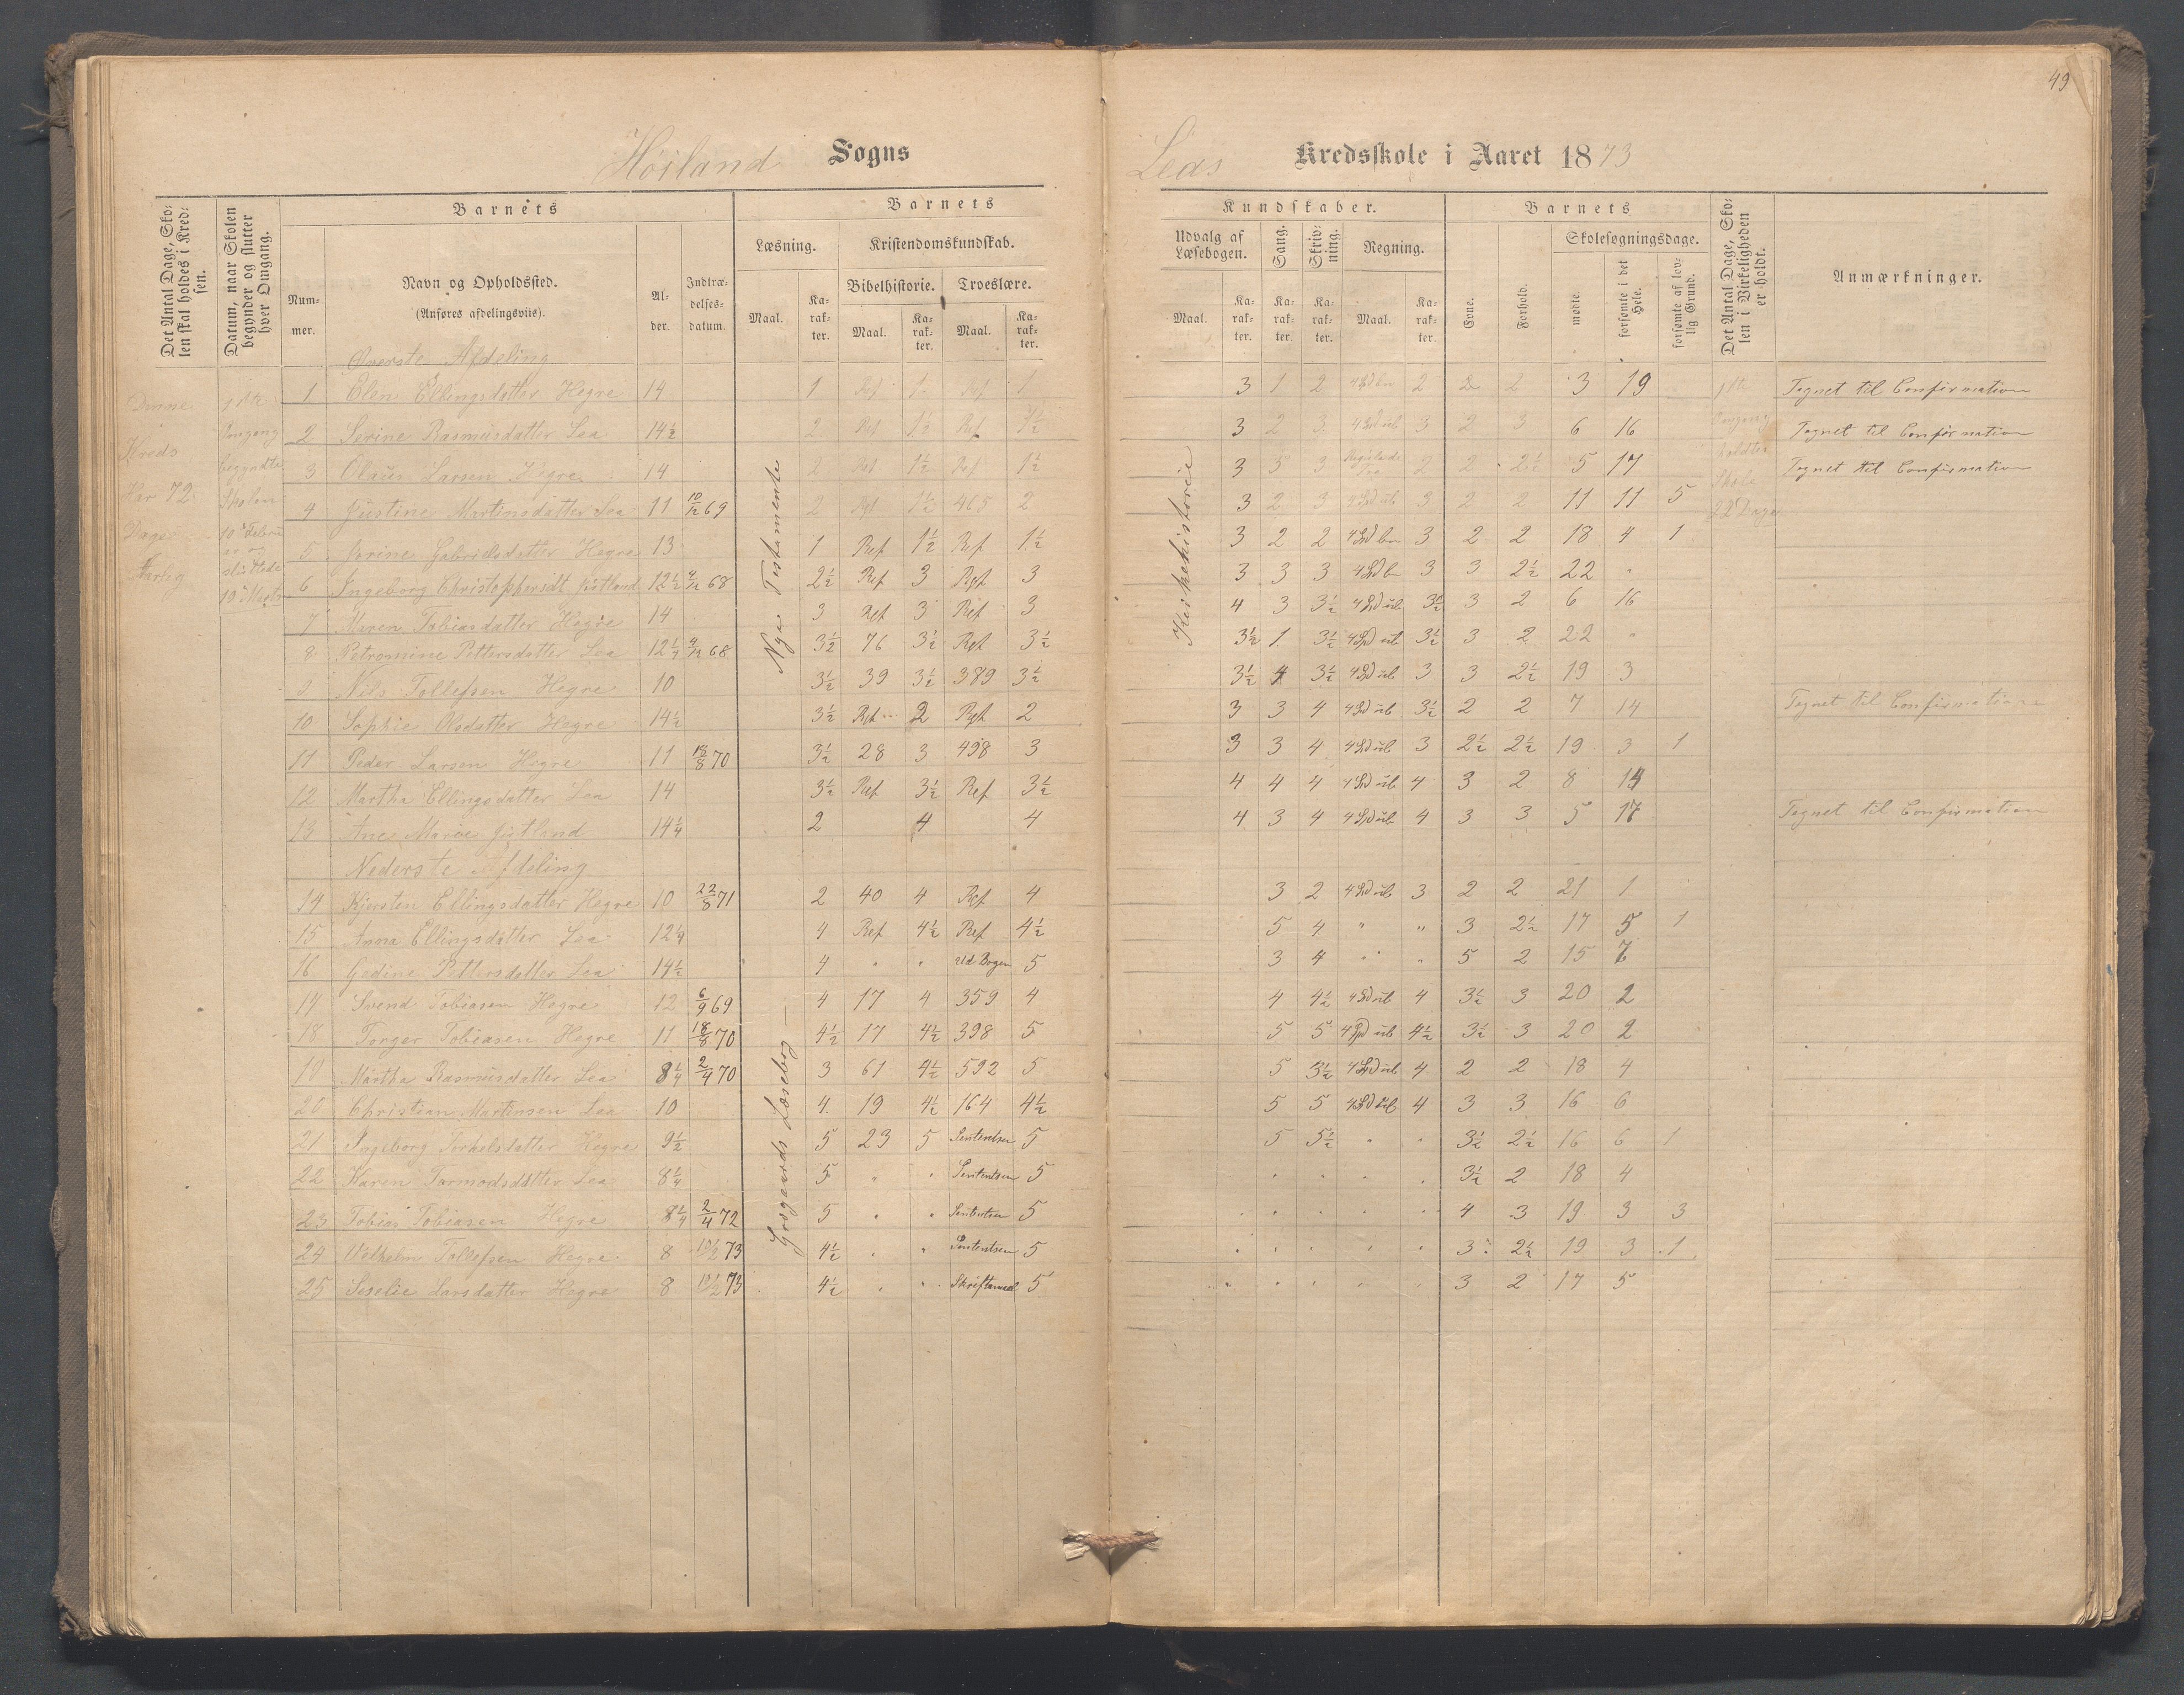 49
Høiland Sogns
Leas Kredsskole i Aaret 1873
Det Antal Dage, Skolen skal holdes i Kredsen.
Datum, naar Skolen begynder og slutter hver Omgang.
Barnets
Nummer.
Navn og Opholdssted.
(Anføres afdelingsviis).
Alder.
Indtrædelsesdatum.
Barnets
Læsning.
Kristendomskundskab.
Bibelhistorie.
Troeslære.
Maal.
Karakter.
Maal.
Karakter.
Maal.
Karakter.
Kundskaber.
Udvalg af Læsebogen.
Sang.
Skrivning.
Regning.
Maal.
Karakter.
Karakter.
Karakter.
Maal.
Karakter.
Barnets
Evne.
Forhold.
Skolesøgningsdage.
mødte.
forsømte i det Hele.
forsømte af lovlig Grund.
Det Antal Dage, Skolen i Virkeligheden er holdt.
Anmærkninger.
Denne
Kreds
Har 72
Dage
Aarlig
1ste
Omgang
begyndte
Skolen
10de Febru
ar og
sluttede
19de Marts
Nye Testamente
Kirkehistorie
1ste
Omgang
holdtes
Skole
22 Dage
Øverste Afdeling
1 Elen Ellingsdatter Hegre 14 1 Rep 1 Rep 1 3 1 2 4 2 2 2 3 19 Tegnet til Confirmation
2 Serine Rasmusdatter Lea 14½ 2 Rep 1½ Rep 1½ 3 2 3 3 2 3 6 16 Tegnet til Confirmation
3 Olaus Larsen Hegre 14 2 Rep 1½ Rep 1½ 3 3 3 2 2 2½ 5 17 Tegnet til Confirmation
4 Justine Martinsdatter Lea 11 10/12 69 2 Rep 1½ 465 2 3 2 3 3 2 2 11 11 5
5 Jorine Gabrielsdatter Hegre 13 1 Rep 1½ Rep 1½ 3 2 2 3 2 2 18 4 1
6 Ingeborg Christophersdt 12½ 68 2½ Rep 3 Rep 3 3 3 3 3 3 2½ 22 "
7 Maren Tobiasdatter Hegre 14 3 Rep 3 Rep 3 4 3 3½ 3½ 3 2 6 16
8 Petromine Pettersdatter Lea 12¼ 68 3½ 76 3½ Rep 3½ 3½ 1 3½ 3½ 3 2 22 "
9 Nils Tollefsen Hegre 10 3½ 39 3½ 389 3½ 3½ 4 3½ 3 3 2½ 19 3
10 Sophie Olsdatter Hegre 14½ 3½ Rep 2 Rep 2 3 3 4 3½ 2 2 7 14 Tegnet til Confirmation
11 Peder Larsen Hegre 11 18/8 70 3½ 28 3 498 3 3 3 4 3 2½ 2½ 19 3 1
12 Martha Ellingsdatter Lea 14 3½ Rep 3½ Rep 3½ 4 4 4 4 3 2 8 14
13 Ane Marie 14¼ 2 4 4 4 3 4 4 3 3 5 17 Tegnet til Confirmation
Nederste Afdeling
Læsebog
14 Kjersten Ellingsdatter Hegre 10 22/8 71 2 40 4 Rep 4 3 2 3 2 2 21 1
15 Anna Ellingsdatter Lea 12¼ 4 Rep 4½ Rep 4½ 5 4 " " 3 2½ 17 5 1
16 Gedine Pettersdatter Lea 14½ 4 " " Ud Bogen 5 3 4 " " 5 2 15 7
17 Svend Tobiasen Hegre 12 6/9 69 4 17 4 359 4 4 4½ 4 3½ 3 20 2
18 Torger Tobiasen Hegre 11 18/8 70 4½ 17 4½ 398 5 5 5 4½ 3½ 3 20 2
19 Martha Rasmusdatter Lea 8¼ 2/4 70 3 61 4½ 592 5 5 5½ 4 2 2 18 4
20 Christian Martinsen Lea 10 4 19 4½ 164 4½ 5 5 4 3 3 16 6
21 Ingeborg Torkelsdatter Hegre 9½ 5 23 5 Sententsen 5 5 5½ " " 3½ 2½ 16 6 1
22 Karen Tormodsdatter Lea 8¼ 5 " " Sententsen 5 " " " " 3½ 2 18 4
23 Tobias Tobiasen Hegre 8¼ 2/4 72 5 " " Sententsen 5 " " " " 4 3 19 3 3
24 Wilhelm Tollefsen Hegre 8 10/2 73 4½ " " Sententsen 5 " " " " 3 2½ 19 3 1
25 Larsdatter Hegre 8 10/2 73 4½ " " 5 " " " " 3 2 17 5